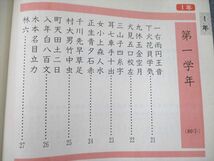 1年
1年
第一学年
(80字)
一右雨円王音
下火花貝学気
九休玉金空月
犬見五口校左
三山子四糸字
耳七車手十出
女小上森人水
正生青夕石赤
千川先早草足
村大男竹中虫
町天田土二日
入年白八百文
木本名目立力
林六
21
21
22
22
23
23
24
24
25
25
26
26
27
27